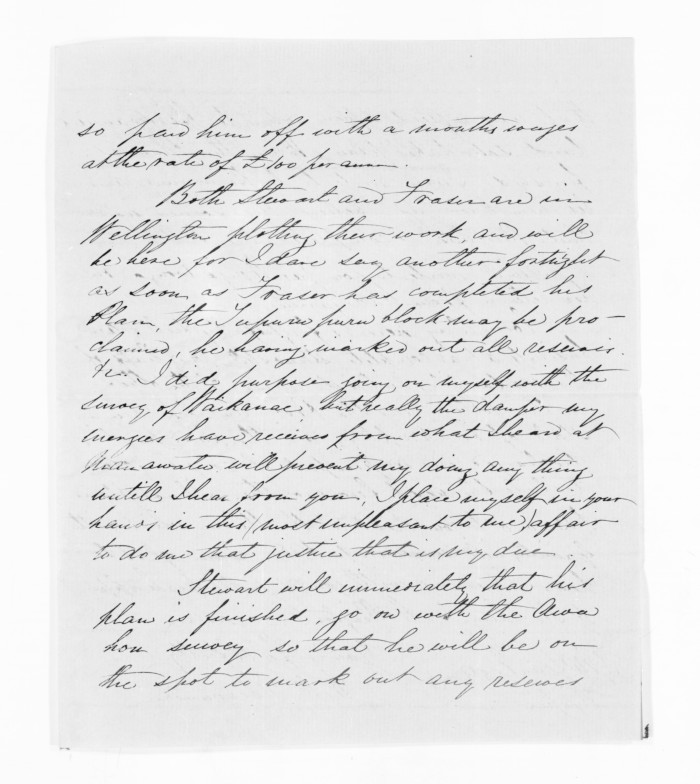 so paid him off with a months wages
at the rate of £100 per ann.
Both Stewart and Fraser are in
Wellington plotting their work, and will
be here for I dare say another fortnight
as soon as Fraser has completed his
Plan, the Tupurupuru block may be pro-
claimed, he having marked out all reserves.
&c. I did purpose going on myself with the
survey of Waikanae but really the damper my
energies have received from what I heard at
Manawatu will prevent my doing any thing
untill I hear from you, I place myself in your
hands in this (most unpleasant to me) affair
to do me that justice that is my due.
Stewart will immediately that his
plan is finished, go on with the Awa
hou survey so that he will be on
the spot to mark out any reserves